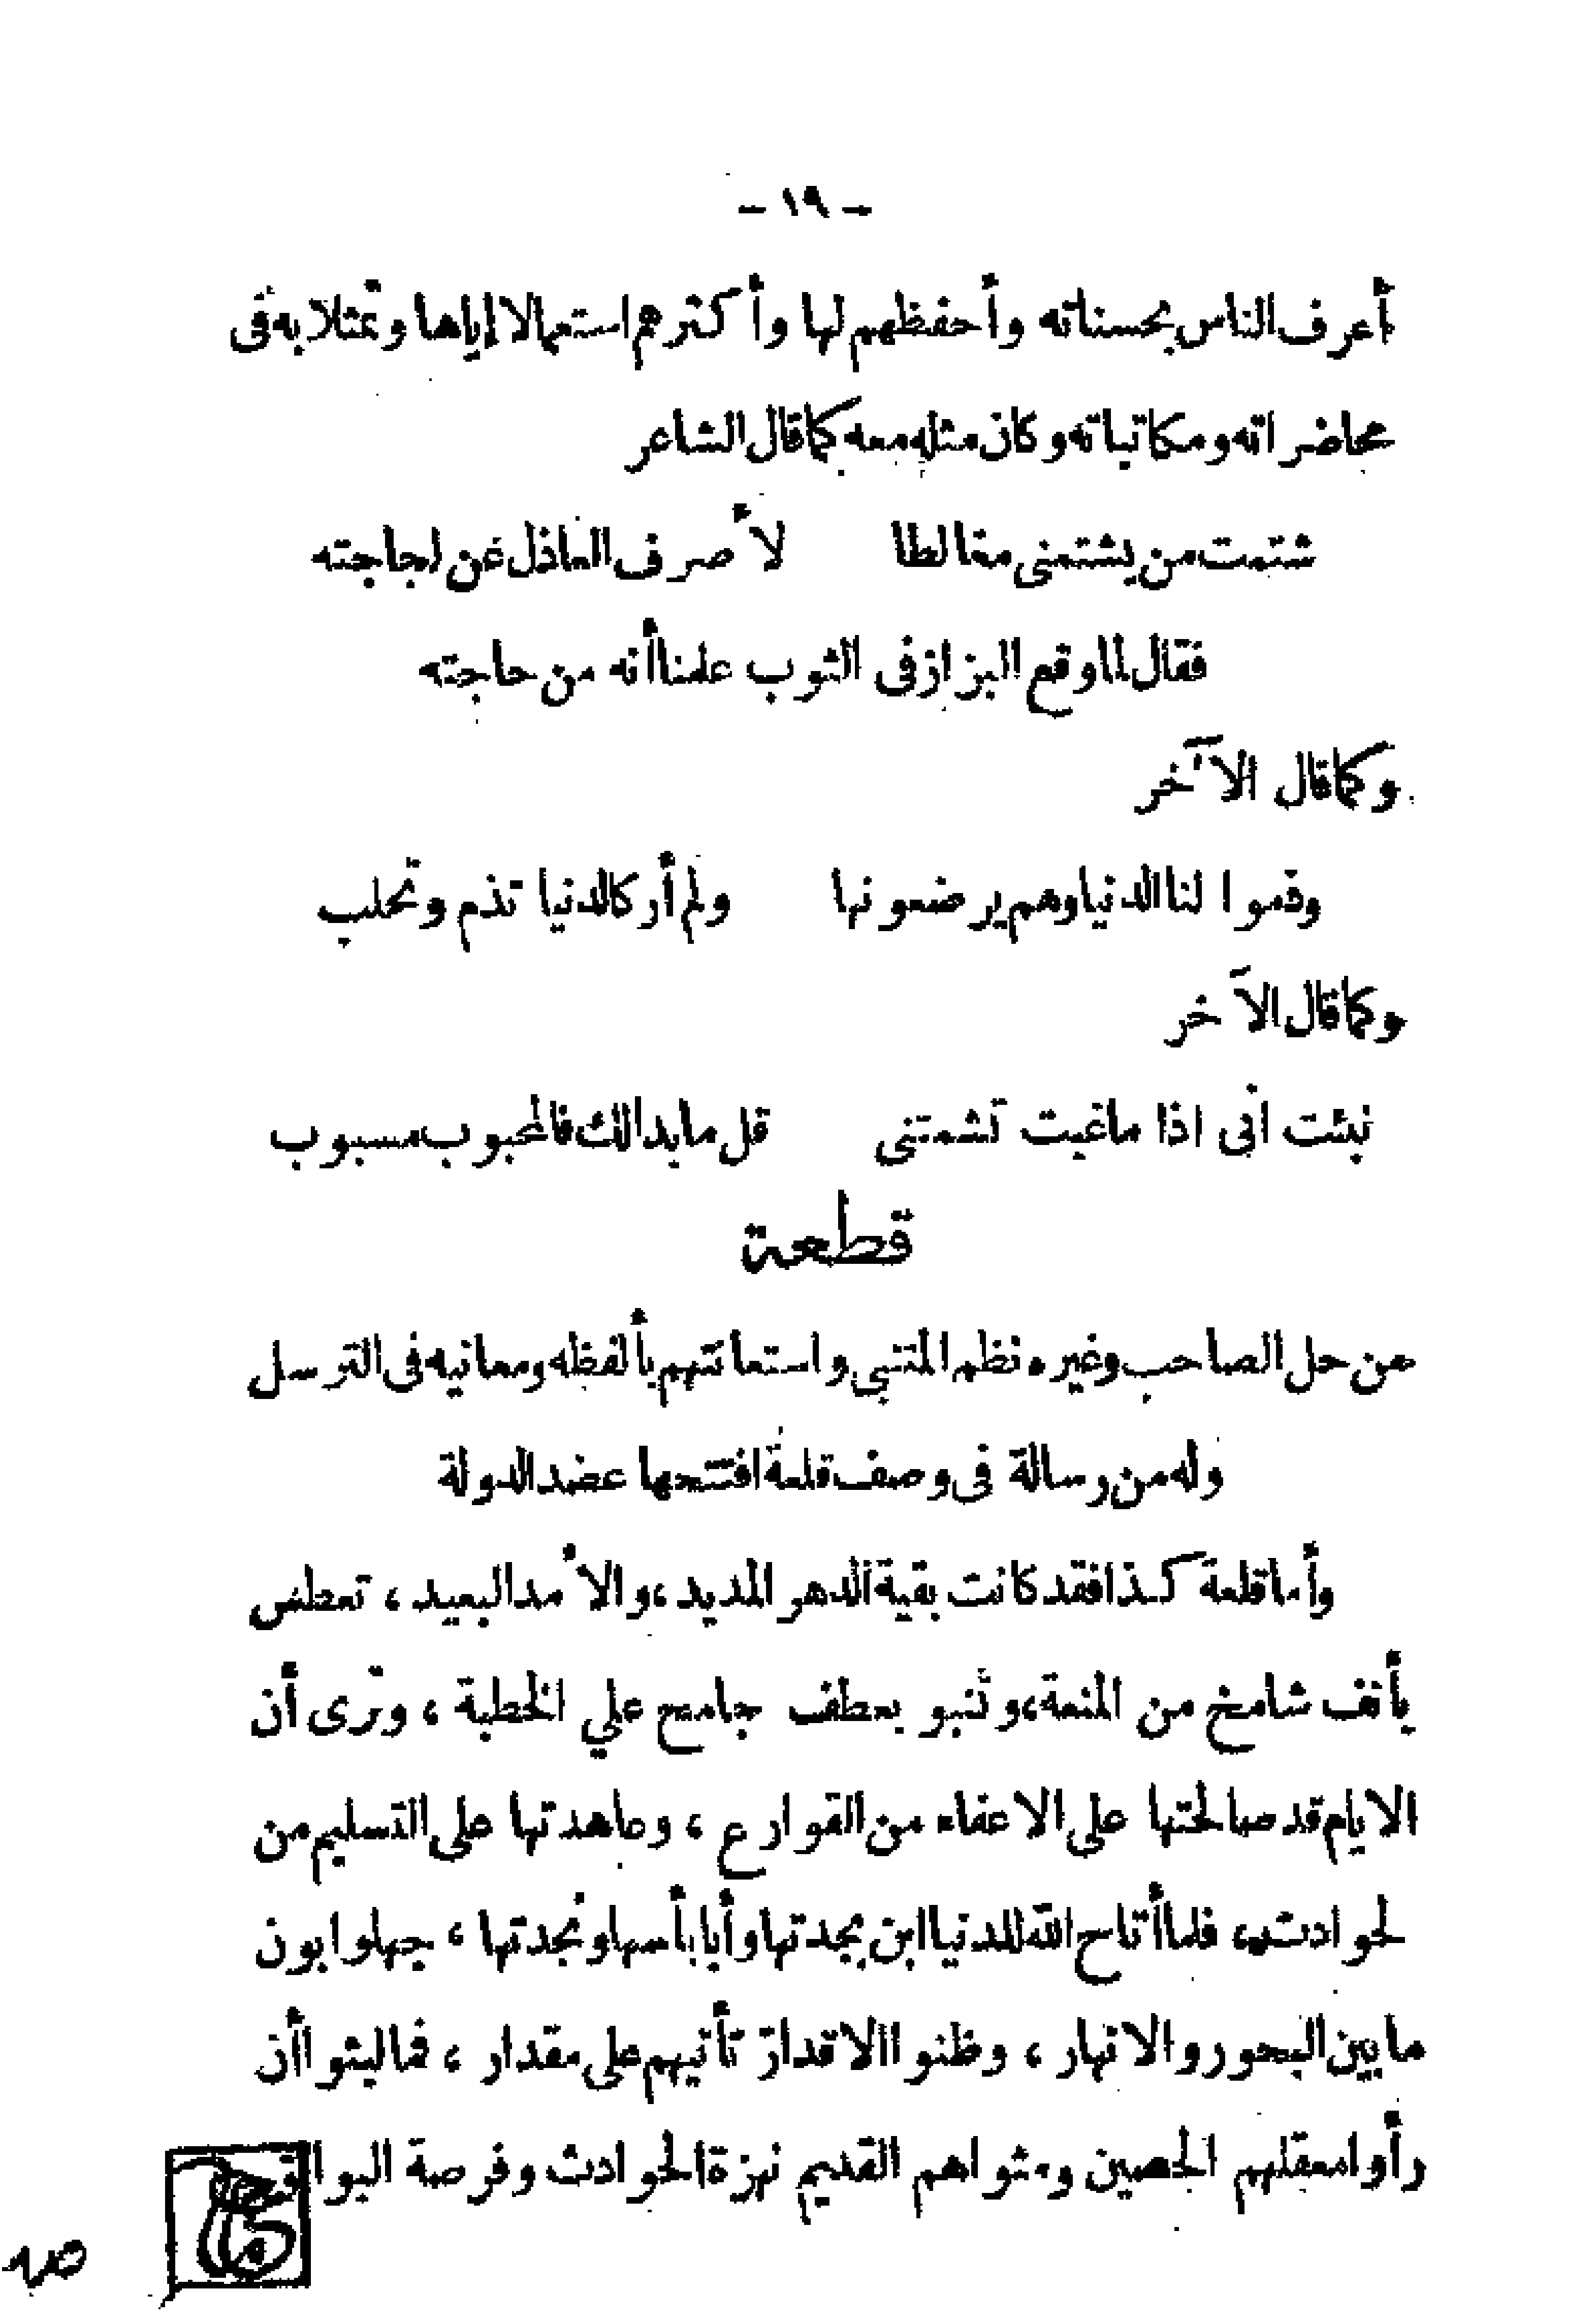 - ١٩ -
أعرف الناس بحسناته وأحفظهم لها وأكثرهم استعمالا إياها وتمثلا به فى
محاضراته ومكاتباته وكان مثله معه كما قال الشاعر
شتمت من يشتمنى مغالطا لأصرف العاذل عن لجاجته
فقال لما وقع البزاز فى الثوب علمنا أنه من حاجته
وكما قال الآخر
وذموا لنا الدنيا وهم يرضعونها ولم أر كالدنيا تذم وتحلب
وكما قال الآخر
نبئت انى اذا ماغبت تشمتنى قل مابدالك فالمحبوب مسبوب
قطعة
من حل الصاحب وغيره نظم المتنبي واستعانتهم بألفظه ومعانيه فى الترسل
وله من رسالة فى وصف قلعة افتتحها عضد الدولة
وأما قلعة كذا فقد كانت بقية الدهر المديد، والأمد البعيد، تعطس
بأنف شامخ من المنعة، وتنبو بعطف جامح علي الخطبة، وترى أن
الايام قد صالحتها على الاعفاء من القوارع، وعاهدتها على التسليم من
لحوادث، فلما أتاح الله للدنيا ابن بجدتها وأبا بأسها ونجدتها، جهلوا بون
مابين البحور والانهار، وظنوا الاقدار تأتيهم على مقدار، فما لبثوا أن
رأوا معقلهم الحصين ومثواهم القديم نهزة الحوادث وفرصة البوائق